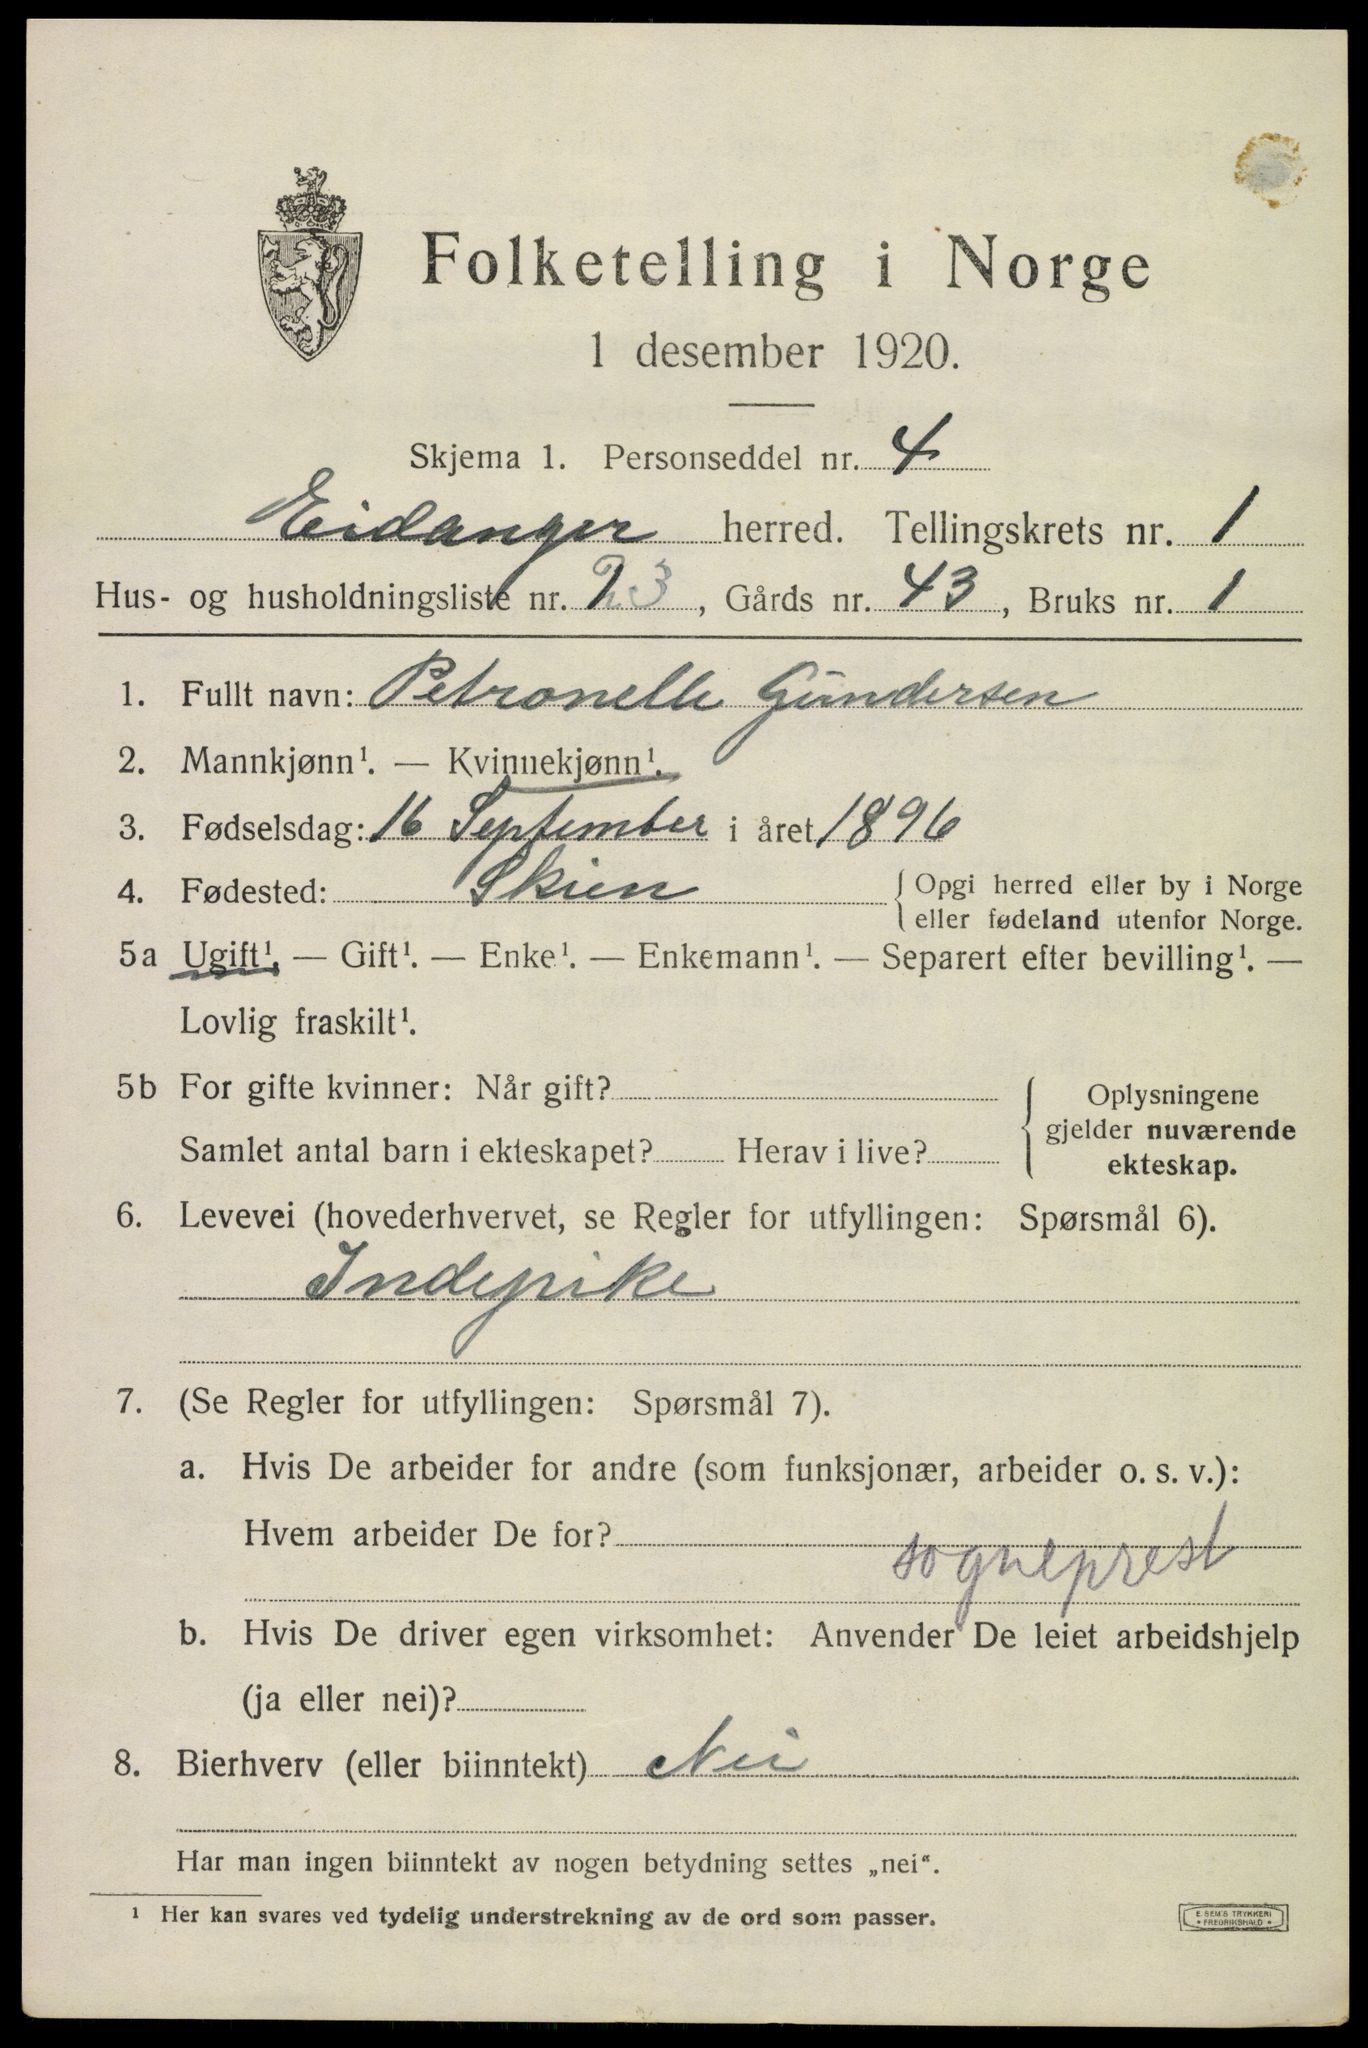 Folketelling i Norge
1 desember 1920.
Skjema 1. Personseddel nr. 4
Eidanger herred. Tellingskrets nr. 1
Hus- og husholdningsliste nr. 23, Gårds nr. 43, Bruks nr. 1
1. Fullt navn: Petronelle Gundersen
2. Mannkjønn¹. — Kvinnekjønn¹.
3. Fødselsdag: 16 September i året 1896
4. Fødested: Skien
Opgi herred eller by i Norge
eller fødeland utenfor Norge.
5a Ugift¹. — Gift¹. — Enke¹. — Enkemann¹. — Separert efter bevilling¹. —
Lovlig fraskilt¹.
5b For gifte kvinner: Når gift?
Samlet antal barn i ekteskapet? Herav i live?
Oplysningene
gjelder nuværende
ekteskap.
6. Levevei (hovederhvervet, se Regler for utfyllingen: Spørsmål 6).
Indepike
7. (Se Regler for utfyllingen: Spørsmål 7).
a. Hvis De arbeider for andre (som funksjonær, arbeider o. s. v.):
Hvem arbeider De for?
sogneprest
b. Hvis De driver egen virksomhet: Anvender De leiet arbeidshjelp
(ja eller nei)?
8. Bierhverv (eller biinntekt) Nei
Har man ingen biinntekt av nogen betydning settes „nei“.
¹ Her kan svares ved tydelig understrekning av de ord som passer.
E. SEM'S TRYKKERI
FREDRIKSHALD